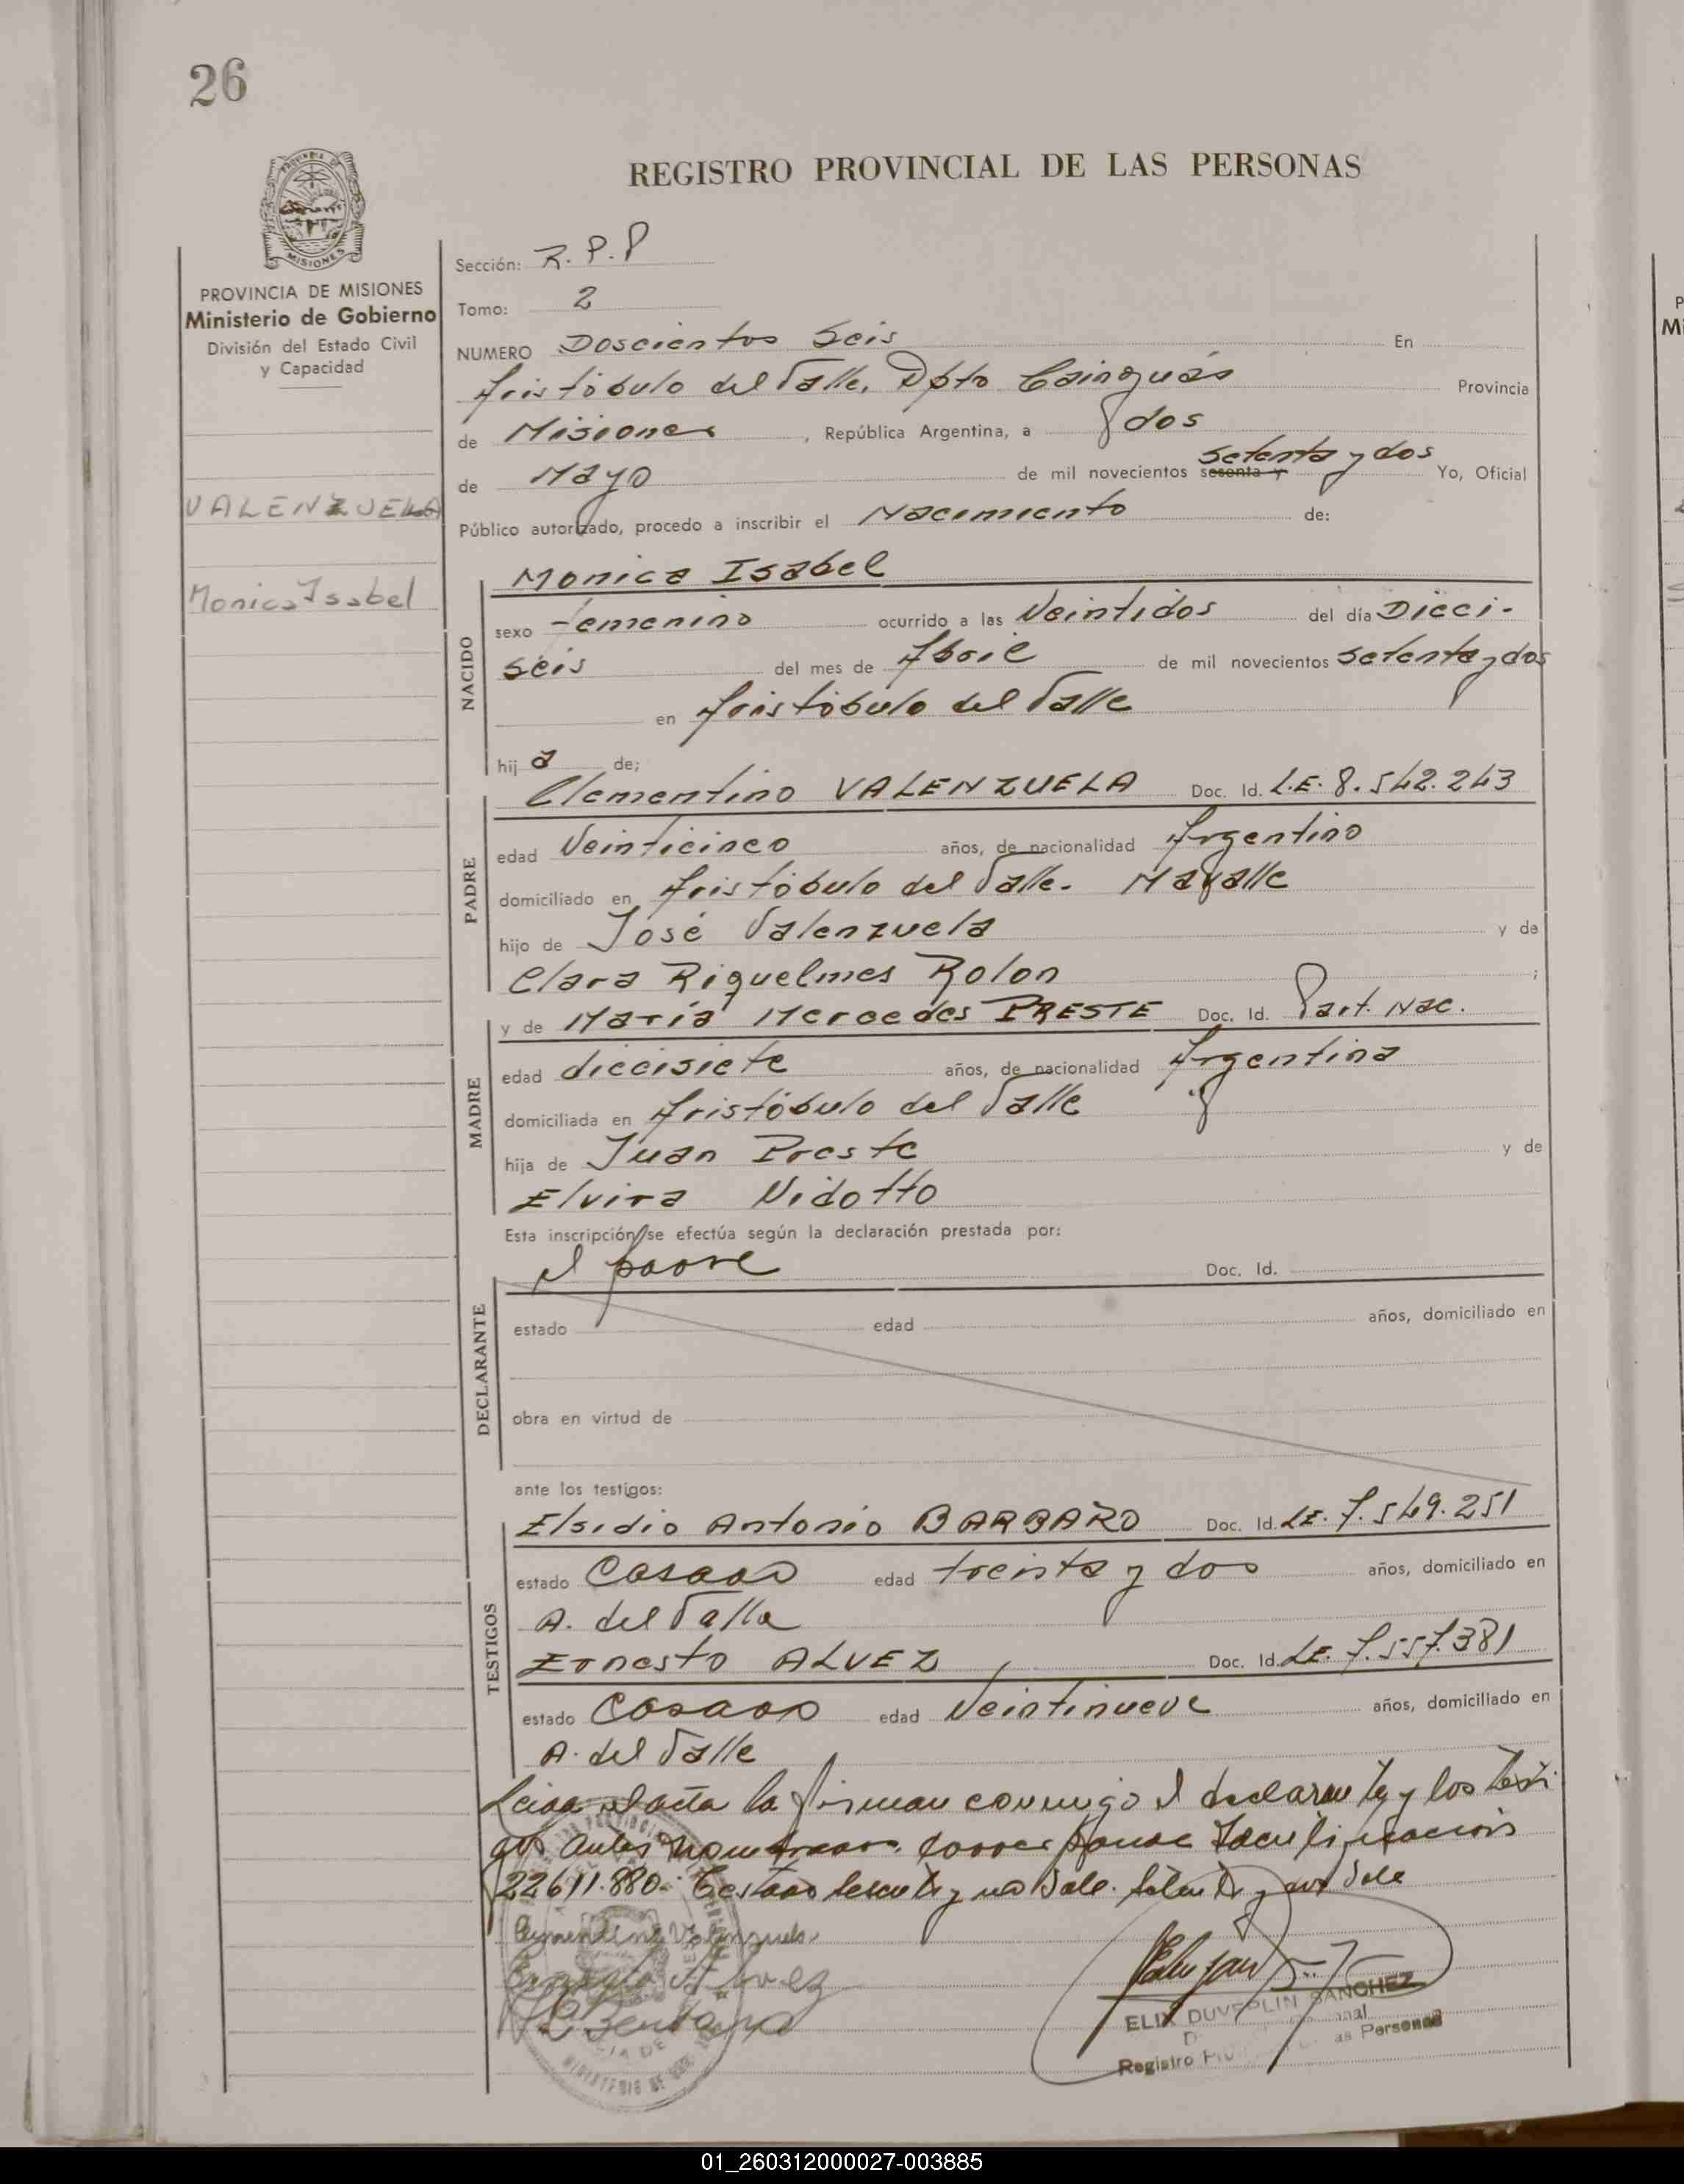 26
REGISTRO PROVINCIAL DE LAS PERSONAS
MISIONES
PROVINCIA DE MISIONES
Ministerio de Gobierno
División del Estado Civil
y Capacidad
VALENZUELA
Monica Isabel
Sección: R.P.P
Tomo: 2
NUMERO Doscientos Seis En
Aristóbulo del Valle, Dpto Cainguás Provincia
de Misiones, República Argentina, a dos
de Mayo de mil novecientos sesenta y setenta y dos Yo, Oficial
Público autorizado, procedo a inscribir el Nacimiento de:
NACIDO
Monica Isabel
sexo femenino ocurrido a las Veintidos del día Dieci-
seis del mes de Abril de mil novecientos setenta y dos
en Aristóbulo del Valle
hij a de;
PADRE
Clementino VALENZUELA Doc. Id. L.E. 8.542.243
edad Veinticinco años, de nacionalidad Argentino
domiciliado en Aristóbulo del Valle.
hijo de José Valenzuela y de
Clara Riquelmes Rolon ;
MADRE
y de María Mercedes PRESTE Doc. Id. Part. Nac.
edad diecisiete años, de nacionalidad Argentina
domiciliada en Aristóbulo del Valle
hija de Juan Preste y de
Elvira Vidotto
Esta inscripción se efectúa según la declaración prestada por:
DECLARANTE
el padre Doc. Id.
estado edad años, domiciliado en
obra en virtud de
ante los testigos:
TESTIGOS
Elsidio Antonio BARBARO Doc. Id. LE. 7.549.251
estado Casado edad treinta y dos años, domiciliado en
A. del Valle
Ernesto ALVEZ Doc. Id. LE. 7.557.381
estado Casado edad Veintinueve años, domiciliado en
A. del Valle
Leida el acta la firman conmigo el declarante y los testi
gos antes nombrados. corresponde
22611.880.- Testado sesenta y no vale. setenta y dos vale
Clementino Valenzuela
Ernesto Alvez
ELIX DUVERLIN SANCHEZ
Registro as Personas
01_260312000027-003885